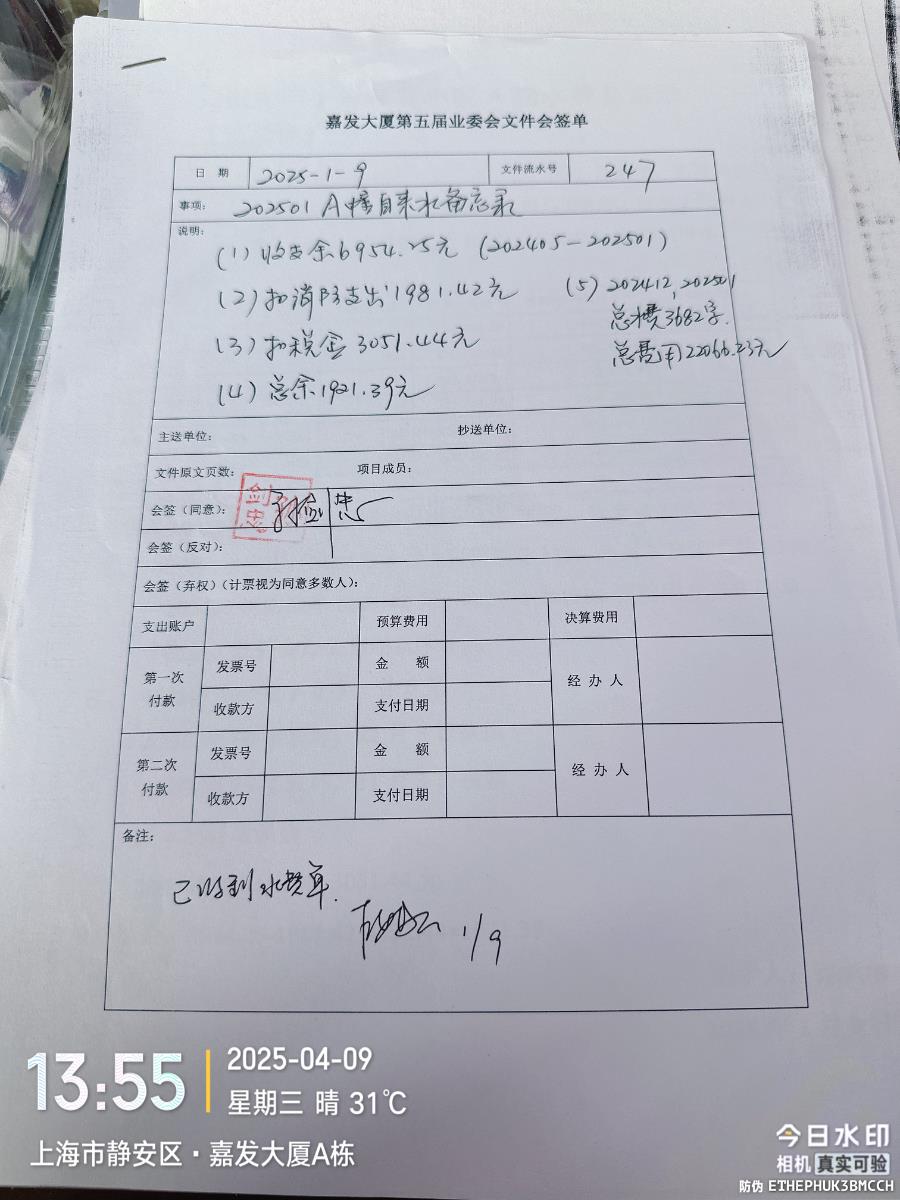 嘉发大厦第五届业委会文件会签单
日 期 2025-1-9 文件流水号 247
事项: 202501 A幢自来水备忘录
说明:
(1) 收支余6954.25元 (202405-202501)
(2) 扣消防支出1981.42元
(3) 扣税金3051.44元
(4) 总余1921.39元
(5) 202412, 202501
总水费3682字.
总费用22066.23元
主送单位: 抄送单位:
文件原文页数: 项目成员:
会签(同意): 剑忠
会签(反对):
会签(弃权)(计票视为同意多数人):
支出账户 预算费用 决算费用
第一次付款 发票号 金 额 经 办 人
收款方 支付日期
第二次付款 发票号 金 额 经 办 人
收款方 支付日期
备注:
已收到水费单.
1/9
13:55
2025-04-09
星期三 晴 31℃
上海市静安区·嘉发大厦A栋
今日水印
相机 真实可验
防伪 ETHEPHUK3BMCCH